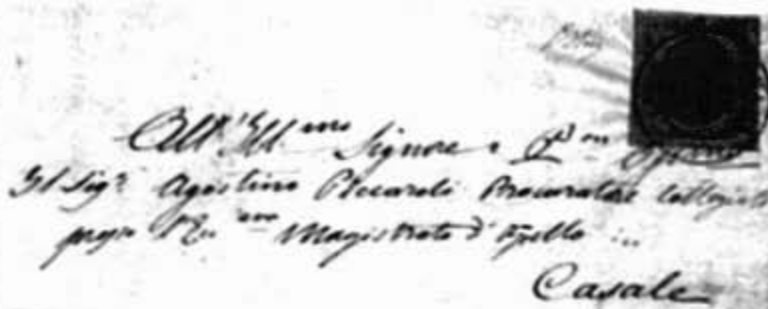 All'Ill.mo Signore
Il Sig.r Agostino Piccaroli Procuratore Collegiato
Magistrato d'Apello
Casale